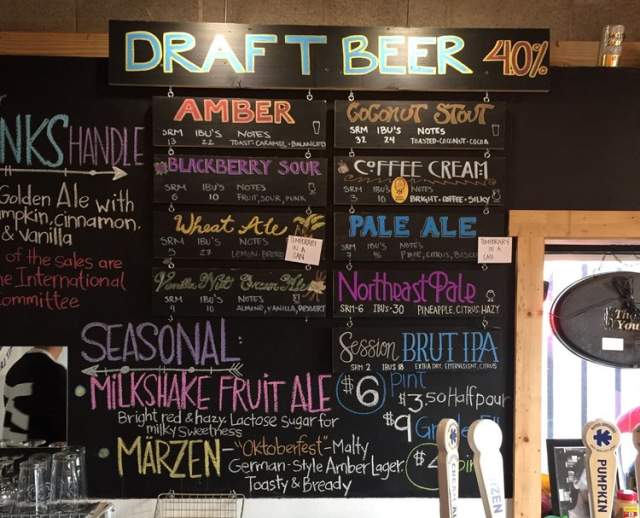 DRAFT BEER 40%
NKS HANDLE
Golden Ale with
mpkin, Cinnamon,
& Vanilla
of the sales are
he International
ommittee
AMBER
SRM IBU'S NOTES
13 22 TOAST-CARAMEL-BALANCED
BLACKBERRY SOUR
SRM IBU'S NOTES
6 10 FRUIT, SOUR, FUNK
Wheat Ale
SRM IBU'S NOTES
5 27
TEMPORARY
IN A
CAN
Vanilla Nut Cream Ale
SRM IBU'S NOTES
4 10 ALMOND, VANILLA, DESSERT
COCONUT STOUT
SRM IBU'S NOTES
32 24 TOASTED-COCONUT-COCOA
COFFEE CREAM
SRM IBU'S NOTES
3 10 BRIGHT-COFFEE-SILKY
PALE ALE
SRM IBU'S NOTES
7 PINE, CITRUS,
TEMPORARY
IN A
CAN
Northeast Pale
SRM-6 IBU's-30 PINEAPPLE, CITRUS, HAZY
Session BRUT IPA
SRM 2 IBU'S 18 EXTRA DRY, EFFERVESCENT, CITRUS
SEASONAL:
MILKSHAKE FRUIT ALE
Bright red & hazy. Lactose Sugar for
milky Sweetness
MÄRZEN-"Oktoberfest"-Malty
German-Style Amber Lager.
Toasty & Bready
$6 Pint
$3.50 Half pour
$9
Thank
You
ZEN
PUMPKIN